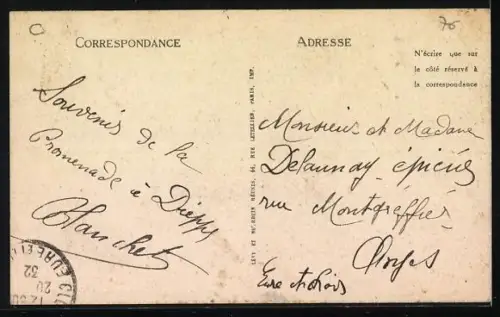 CORRESPONDANCE
Souvenir de la
Promenade à Dieppe
Blanchet
ADRESSE
N'écrire que sur
le côté réservé à
la correspondance
Monsieur et Madame
Delaunay épicier
rue
Cloyes
Eure et Loir
LEVY ET NEURDEIN RÉUNIS, 44, RUE LETELLIER, PARIS, IMP.
EURE ET L
20
32